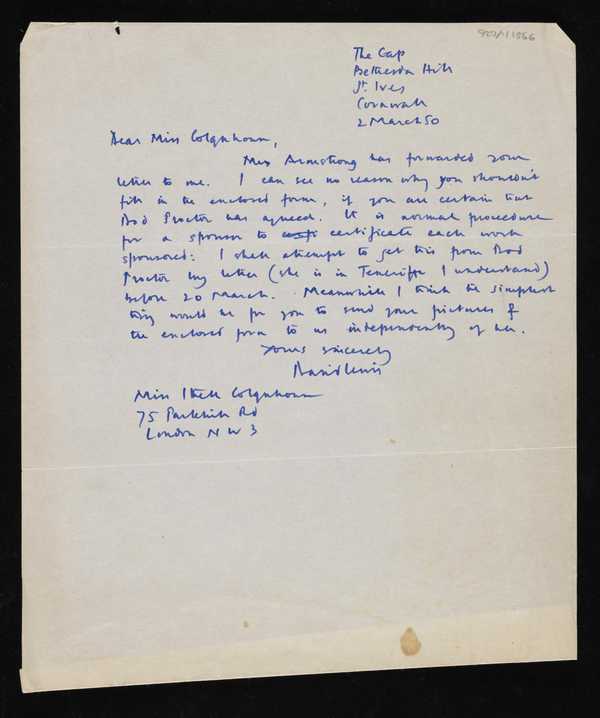 The Cap
Bethesda Hill
St. Ives
Cornwall
2 March 50
Dear Miss Colquhoun,
Miss Armstrong has forwarded your
letter to me. I can see no reason why you shouldn't
fill in the enclosed form, if you are certain that
Dod Procter has agreed. It is normal procedure
for a sponsor to certificate each work
sponsored: I shall attempt to get this from Dod
Procter by letter (she is in Teneriffe I understand)
before 20 March. Meanwhile I think the simplest
thing would be for you to send your pictures &
the enclosed form to us independently of her.
Yours sincerely
David Lewis
Miss Ithell Colquhoun
75 Parkhill Rd
London N W 3